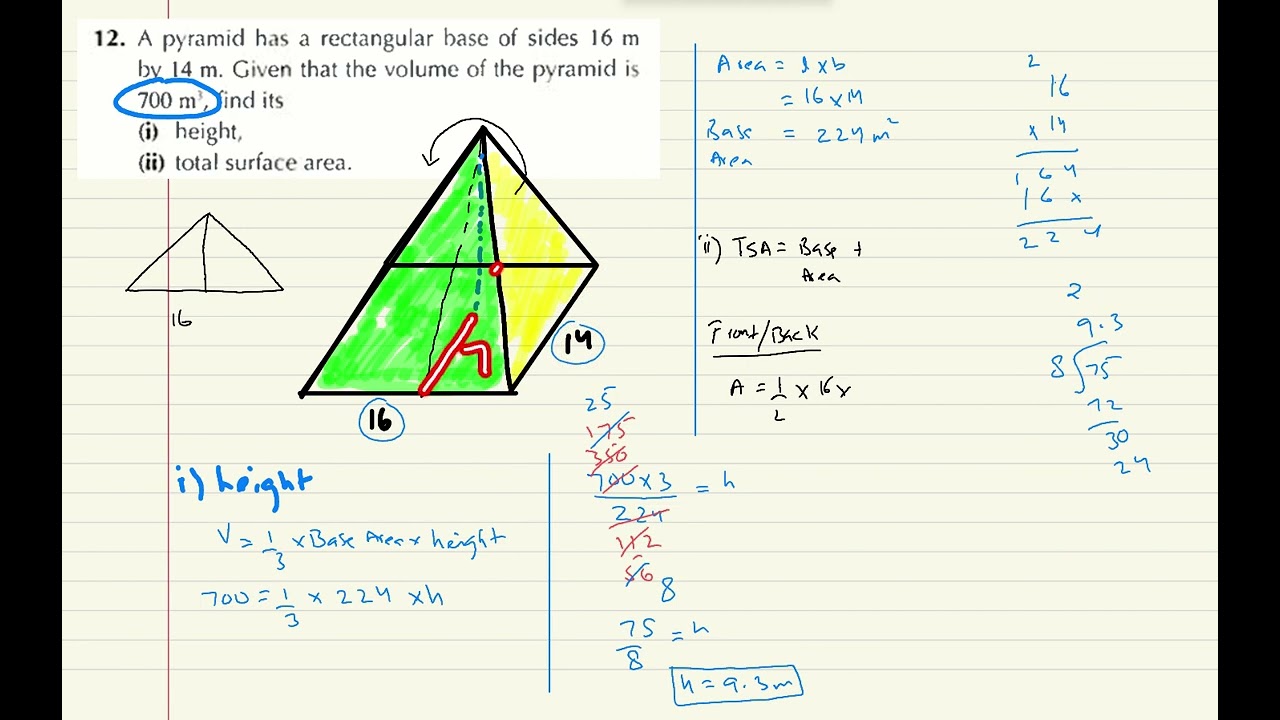 12. A pyramid has a rectangular base of sides 16 m
by 14 m. Given that the volume of the pyramid is
700 m³, find its
(i) height,
(ii) total surface area.
16
14
16
i) height
V = 1/3 × Base Area × height
700 = 1/3 × 224 × h
25
175
350
700 × 3 = h
224
112
56
8
75/8 = h
h = 9.3 m
Area = l × b
= 16 × 14
Base = 224 m²
Area
ii) TSA = Base +
Area
Front/Back
A = 1/2 × 16 ×
2
16
× 14
1 6 4
1 6 ×
2 2 4
2
9.3
8 75
72
30
24